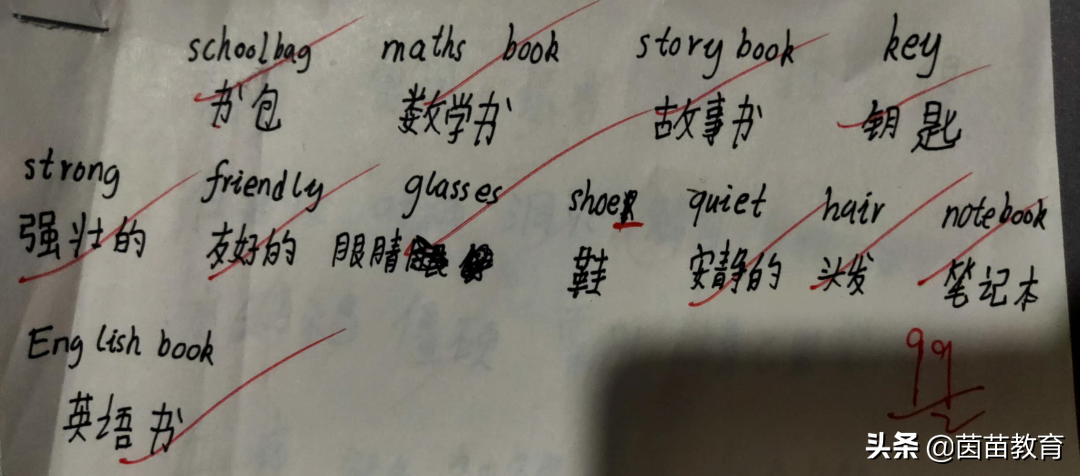 schoolbag maths book story book key
书包 数学书 故事书 钥匙
strong friendly glasses shoe quiet hair notebook
强壮的 友好的 眼睛 鞋 安静的 头发 笔记本
English book
英语书
99
头条 @茵苗教育